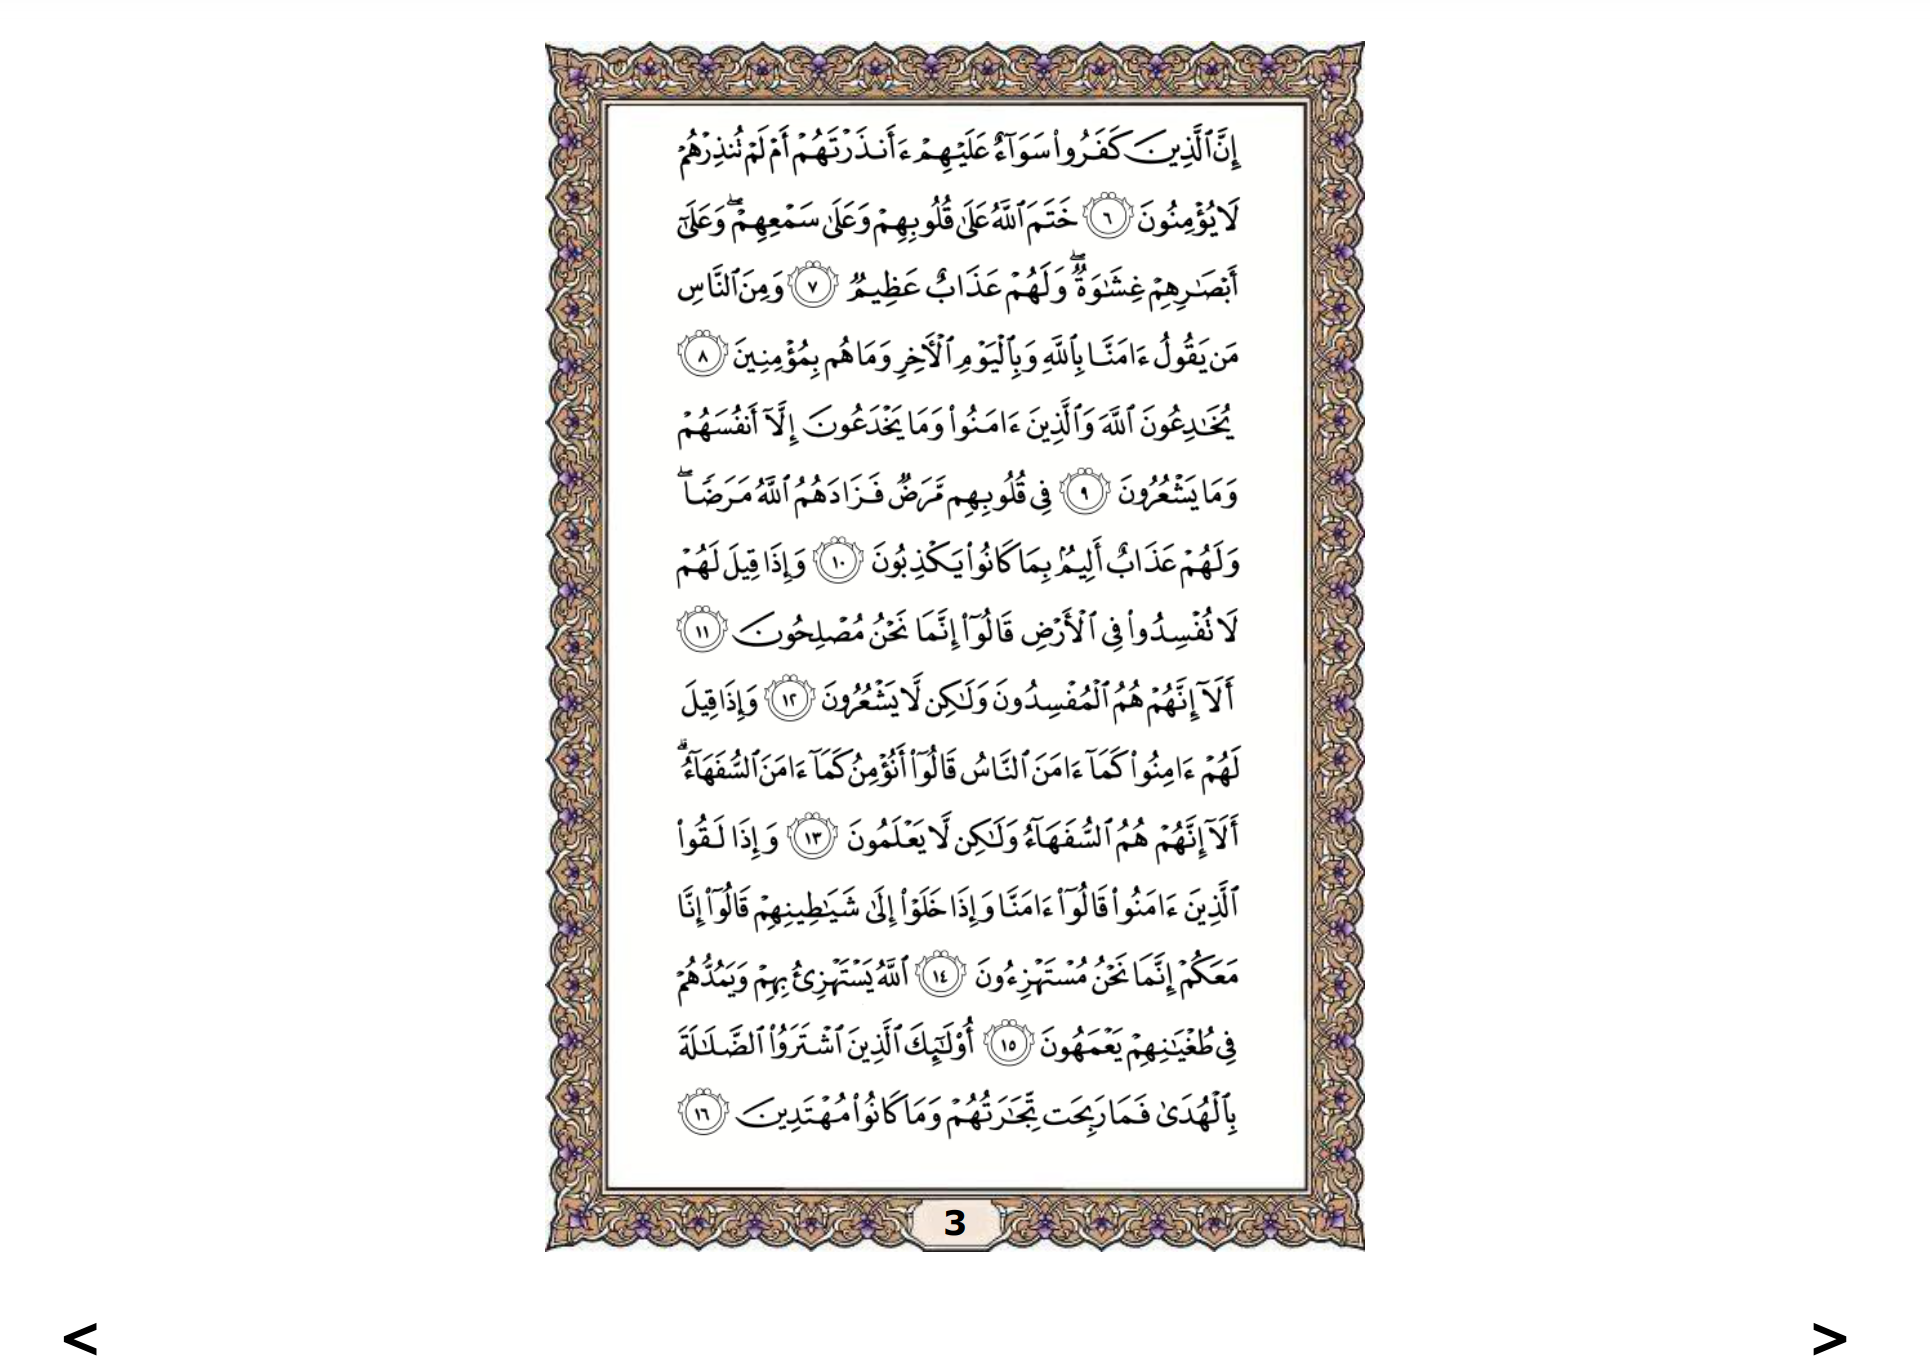 إِنَّ ٱلَّذِينَ كَفَرُوا۟ سَوَآءٌ عَلَيْهِمْ ءَأَنذَرْتَهُمْ أَمْ لَمْ تُنذِرْهُمْ
لَا يُؤْمِنُونَ ٦ خَتَمَ ٱللَّهُ عَلَىٰ قُلُوبِهِمْ وَعَلَىٰ سَمْعِهِمْ ۖ وَعَلَىٰٓ
أَبْصَـٰرِهِمْ غِشَـٰوَةٌ ۖ وَلَهُمْ عَذَابٌ عَظِيمٌ ٧ وَمِنَ ٱلنَّاسِ
مَن يَقُولُ ءَامَنَّا بِٱللَّهِ وَبِٱلْيَوْمِ ٱلْـَٔاخِرِ وَمَا هُم بِمُؤْمِنِينَ ٨
يُخَـٰدِعُونَ ٱللَّهَ وَٱلَّذِينَ ءَامَنُوا۟ وَمَا يَخْدَعُونَ إِلَّآ أَنفُسَهُمْ
وَمَا يَشْعُرُونَ ٩ فِى قُلُوبِهِم مَّرَضٌ فَزَادَهُمُ ٱللَّهُ مَرَضًا ۖ
وَلَهُمْ عَذَابٌ أَلِيمٌۢ بِمَا كَانُوا۟ يَكْذِبُونَ ١٠ وَإِذَا قِيلَ لَهُمْ
لَا تُفْسِدُوا۟ فِى ٱلْأَرْضِ قَالُوٓا۟ إِنَّمَا نَحْنُ مُصْلِحُونَ ١١
أَلَآ إِنَّهُمْ هُمُ ٱلْمُفْسِدُونَ وَلَـٰكِن لَّا يَشْعُرُونَ ١٢ وَإِذَا قِيلَ
لَهُمْ ءَامِنُوا۟ كَمَآ ءَامَنَ ٱلنَّاسُ قَالُوٓا۟ أَنُؤْمِنُ كَمَآ ءَامَنَ ٱلسُّفَهَآءُ ۗ
أَلَآ إِنَّهُمْ هُمُ ٱلسُّفَهَآءُ وَلَـٰكِن لَّا يَعْلَمُونَ ١٣ وَإِذَا لَقُوا۟
ٱلَّذِينَ ءَامَنُوا۟ قَالُوٓا۟ ءَامَنَّا وَإِذَا خَلَوْا۟ إِلَىٰ شَيَـٰطِينِهِمْ قَالُوٓا۟ إِنَّا
مَعَكُمْ إِنَّمَا نَحْنُ مُسْتَهْزِءُونَ ١٤ ٱللَّهُ يَسْتَهْزِئُ بِهِمْ وَيَمُدُّهُمْ
فِى طُغْيَـٰنِهِمْ يَعْمَهُونَ ١٥ أُو۟لَـٰٓئِكَ ٱلَّذِينَ ٱشْتَرَوُا۟ ٱلضَّلَـٰلَةَ
بِٱلْهُدَىٰ فَمَا رَبِحَت تِّجَـٰرَتُهُمْ وَمَا كَانُوا۟ مُهْتَدِينَ ١٦
3
< >